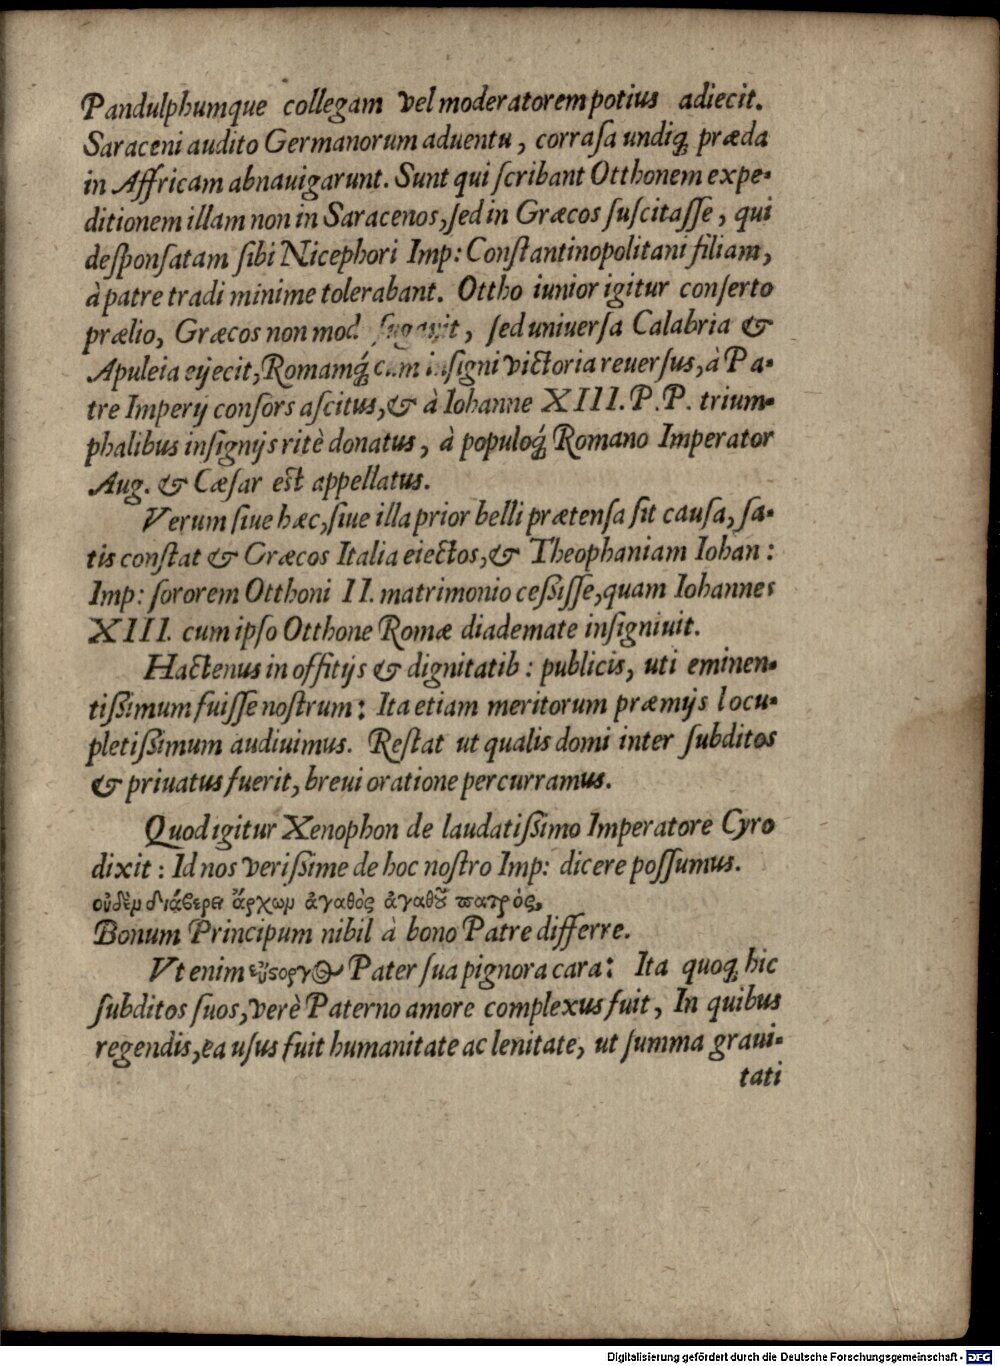 Pandulphumque collegam vel moderatorem potius adiecit.
Saraceni audito Germanorum aduentu, corrasa undiq́ꝫ præda
in Affricam abnauigarunt. Sunt qui scribant Otthonem expe-
ditionem illam non in Saracenos, sed in Græcos suscitasse, qui
desponsatam sibi Nicephori Imp: Constantinopolitani filiam,
à patre tradi minime tolerabant. Ottho iunior igitur conserto
prælio, Græcos non mod fugauit, sed uniuersa Calabria &
Apuleia eijecit, Romamq́ꝫ cum insigni victoria reuersus, à Pa-
tre Imperij consors ascitus, & à Iohanne XIII. P.P. trium-
phalibus insignijs ritè donatus, à populoq́ꝫ Romano Imperator
Aug. & Cæsar est appellatus.
Verum siue hæc, siue illa prior belli prætensa sit causa, sa-
tis constat & Græcos Italia eiectos, & Theophaniam Iohan:
Imp: sororem Otthoni II. matrimonio cessisse, quam Iohannes
XIII. cum ipso Otthone Romæ diademate insigniuit.
Hactenus in offitijs & dignitatib: publicis, uti eminen-
tissimum fuisse nostrum: Ita etiam meritorum præmijs locu-
pletissimum audiuimus. Restat ut qualis domi inter subditos
& priuatus fuerit, breui oratione percurramus.
Quod igitur Xenophon de laudatissimo Imperatore Cyro
dixit: Id nos verissime de hoc nostro Imp: dicere possumus.
οὐδὲμ διάφερει ἄρχωμ ἀγαθὸς ἀγαθοῦ πατρὸς,
Bonum Principum nibil à bono Patre differre.
Vt enim εὔϛοργος Pater sua pignora cara: Ita quoqꝫ hic
subditos suos, verè Paterno amore complexus fuit, In quibus
regendis, ea usus fuit humanitate ac lenitate, ut summa graui-
tati
Digitalisierung gefördert durch die Deutsche Forschungsgemeinschaft - DFG